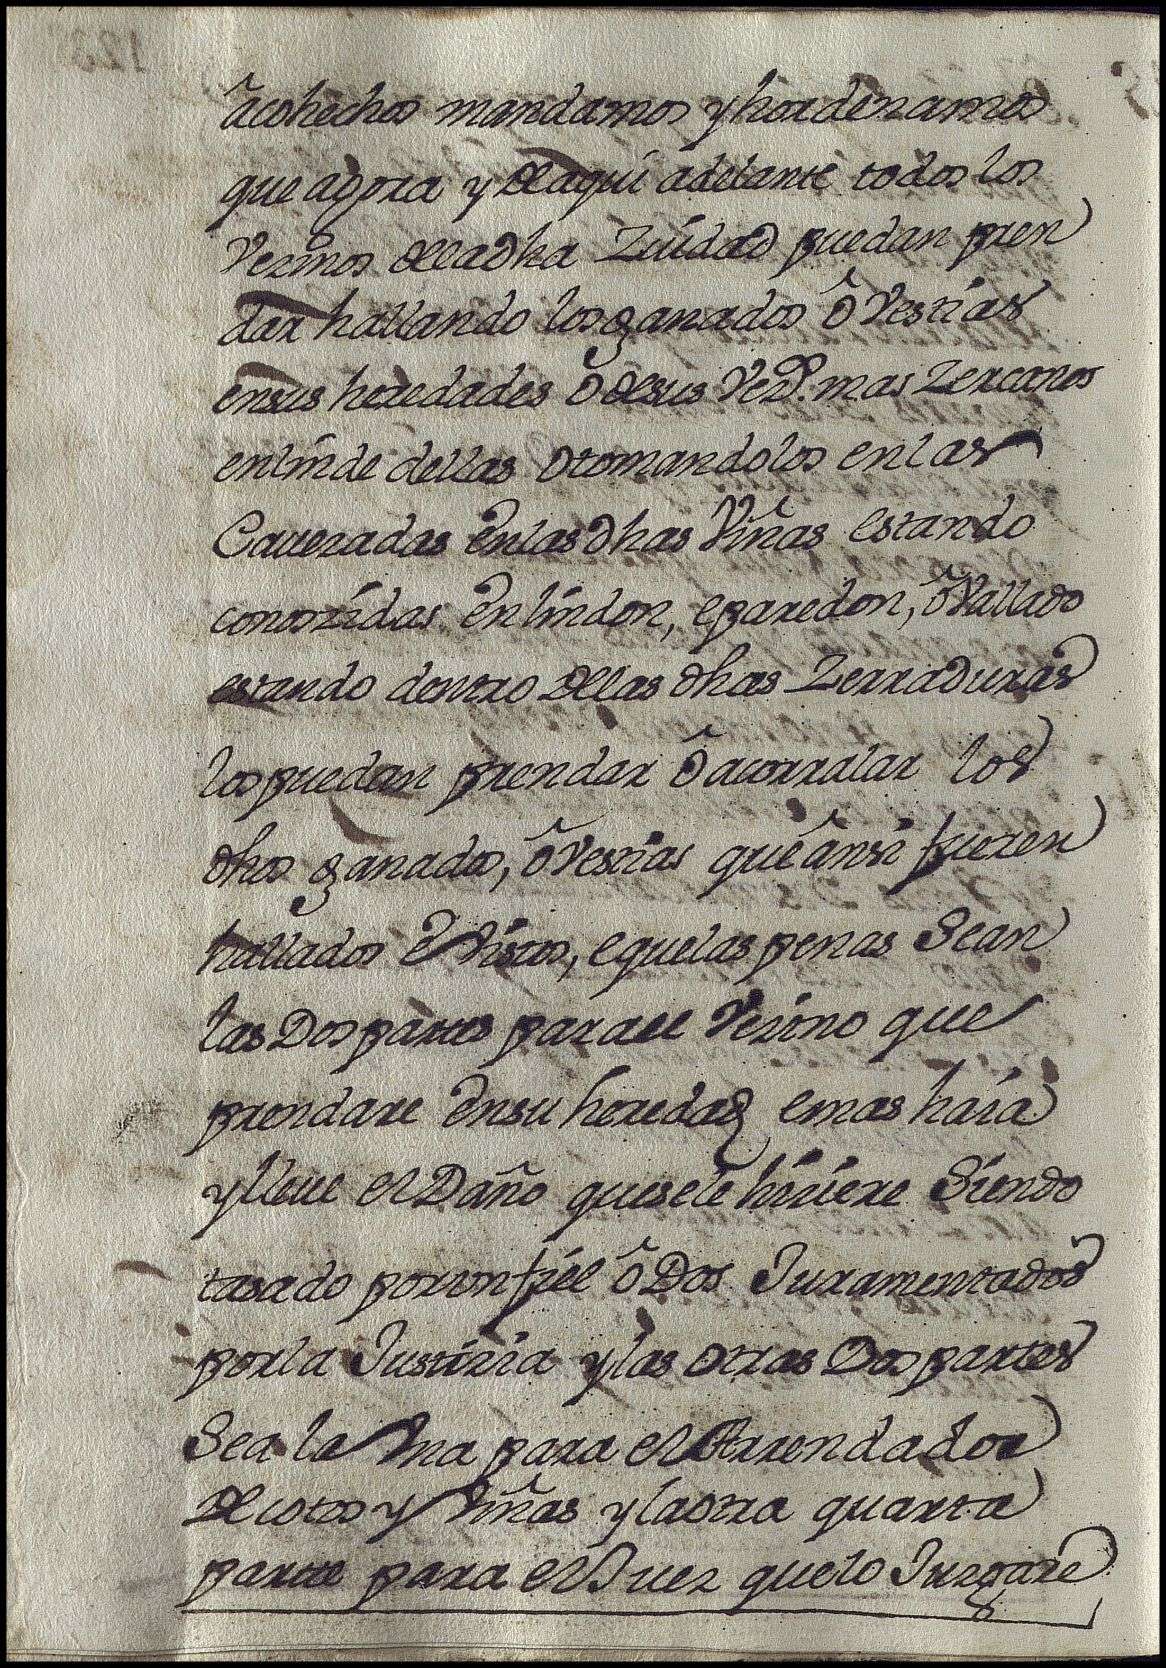 âcohechos mandamos y hordenamos
que agora y de aqui adelante todos los
Vezinos de la dha Zuidad puedan pren
dar hallando los ganados ô Vestias
en sus heredades ô de sus Vezos. mas Zercanos
en linde dellas o tomandolos en las
Caueradas en las dhas Viñas estando
conozidas en lindon, e paredon, ô Vallado
estando dentro de llas dhas Zerraduras
los puedan prendar ô acorralar los
dhos ganados, ô Vestias que ânsi fueren
hallados e Vistos, e que las penas Sean
las Dos partes para el Vezino que
prendare en su heredad e mas haia
y lleue el Daño que se le hiziere Siendo
tasado por un fiel ô Dos Juramentados
por la Justizia y las otras Dos partes
Sea la Vna para el Arrendador
de cotos y Viñas y la otra quarta
parte para el Juez que lo Juzgare